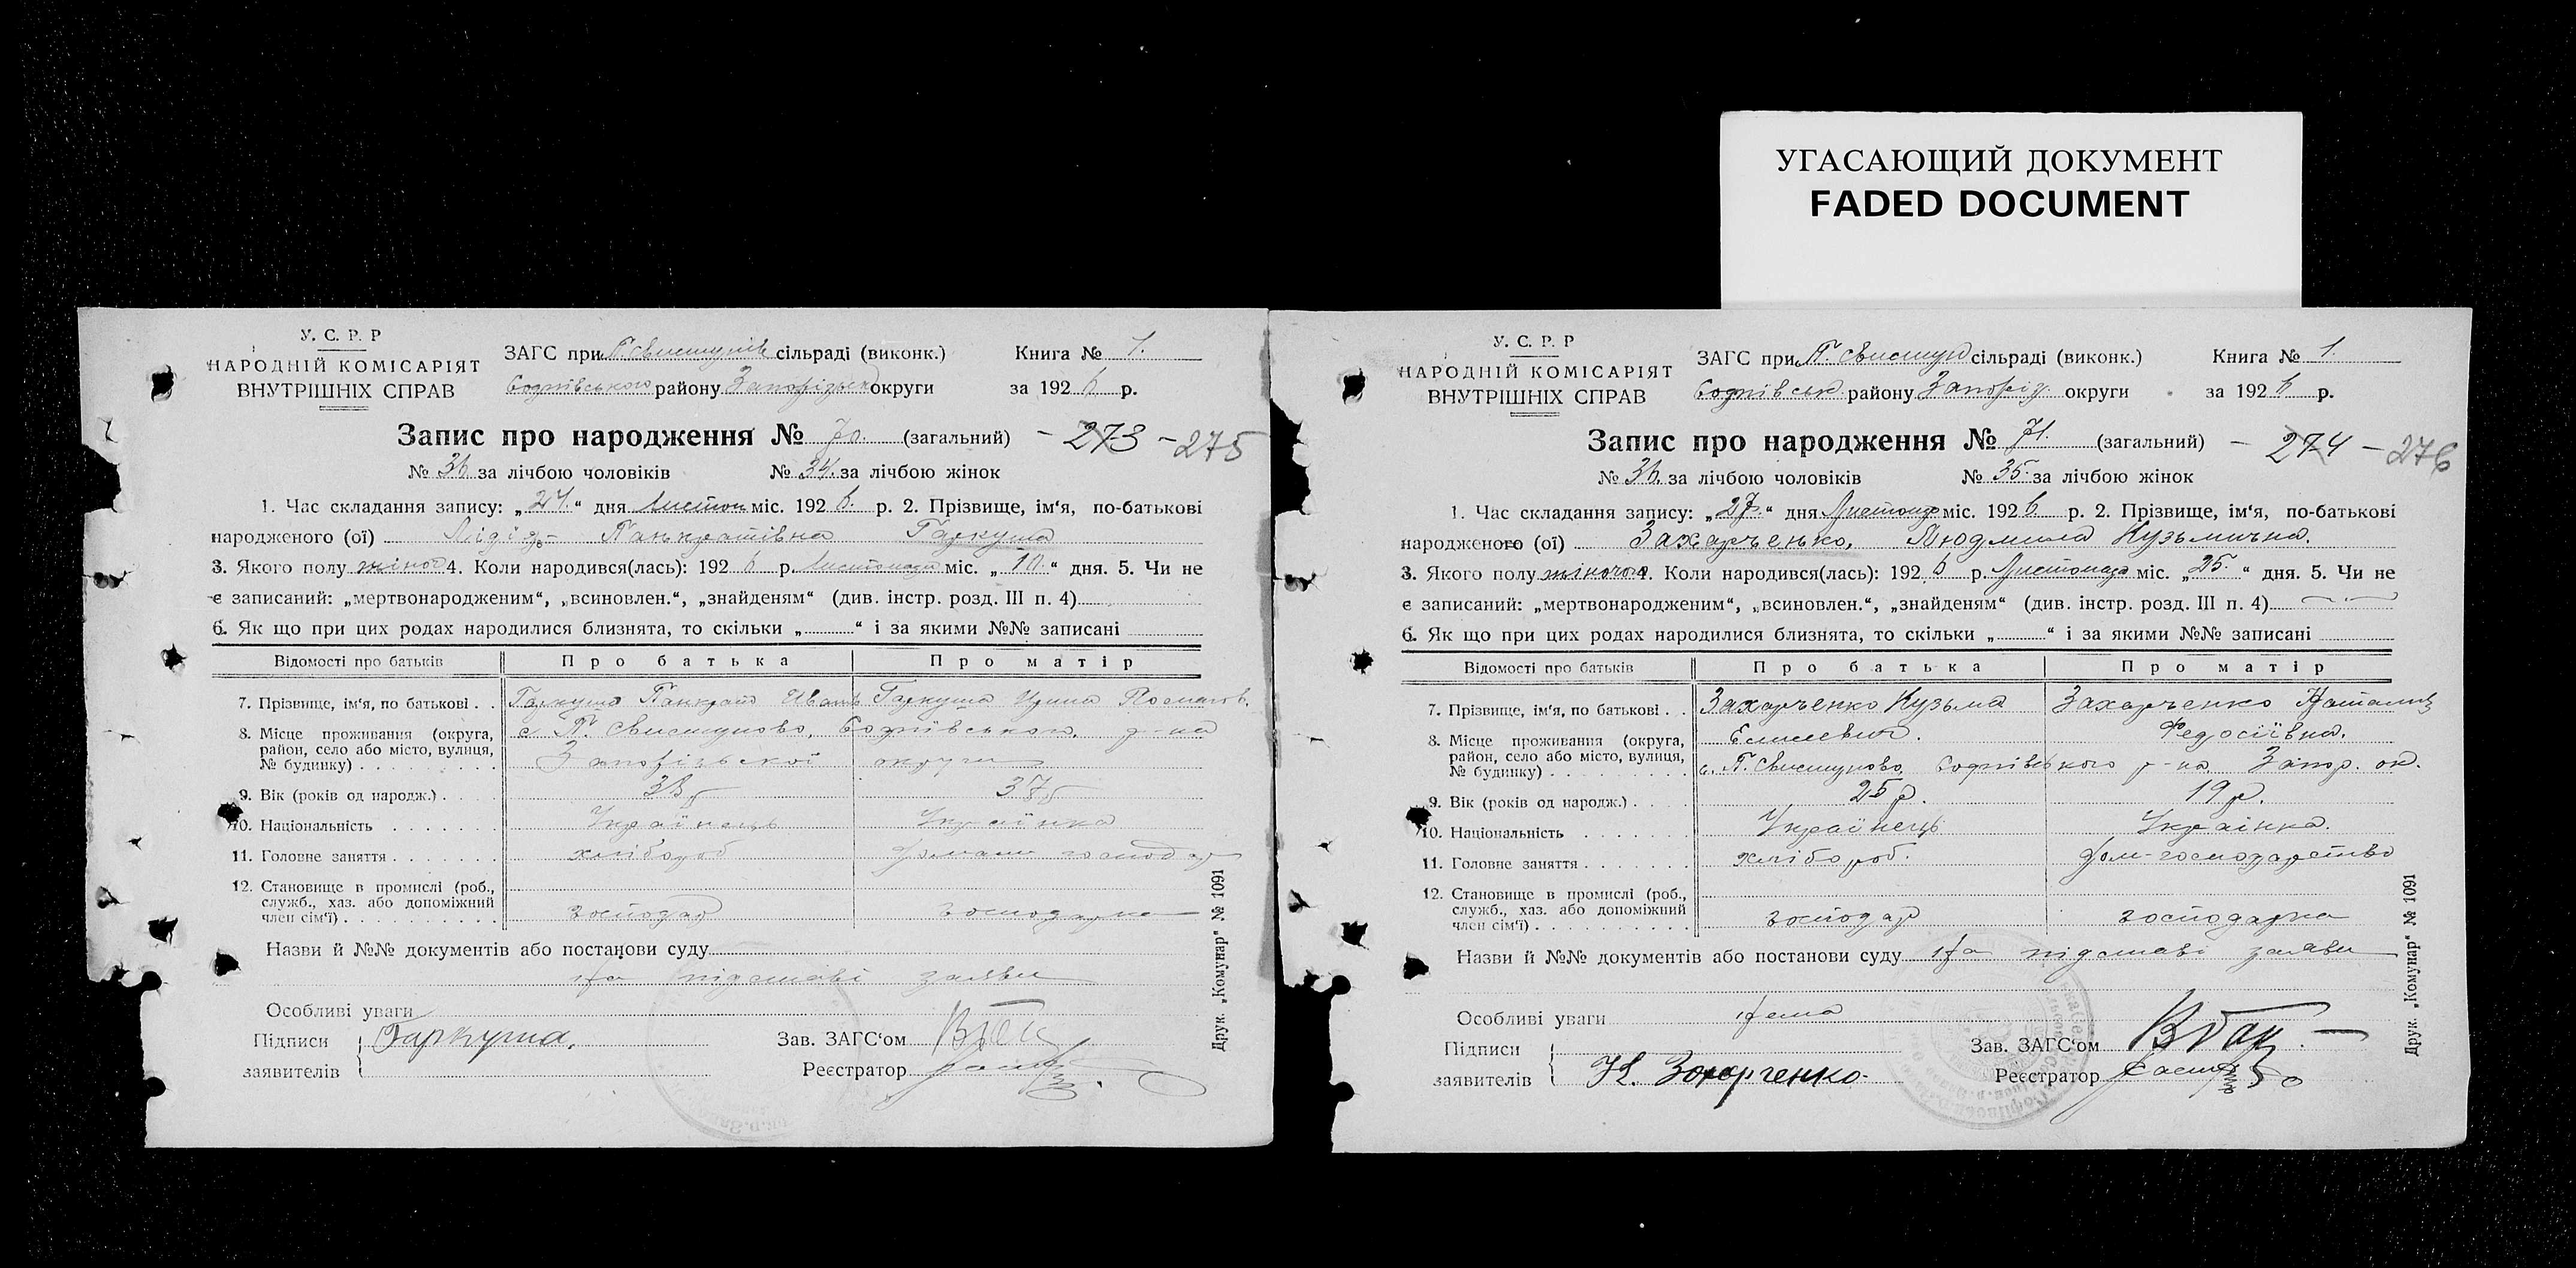 УГАСАЮЩИЙ ДОКУМЕНТ
FADED DOCUMENT
У. С. Р. Р
НАРОДНІЙ КОМІСАРІЯТ
ВНУТРІШНІХ СПРАВ
ЗАГС при П. Свистунів сільраді (виконк.) Книга № 1.
Софіївського району Запорізької округи за 192 6 р.
Запис про народження № 70. (загальний) - 273 - 275
№ 36 за лічбою чоловіків № 34. за лічбою жінок
1. Час складання запису: „ 24. “ дня Листоп міс. 192 6. р. 2. Прізвище, ім‘я, по-батькові
народженого (ої) Лідія Панкратівна Гаркуша
3. Якого полу жіноч 4. Коли народився(лась): 192 6 р. Листопада міс. „ 10. “ дня. 5. Чи не
є записаний: „мертвонародженим“, „всиновлен.“, „знайденям“ (див. інстр. розд. III п. 4)
6. Як що при цих родах народилися близнята, то скільки „ “ і за якими №№ записані
Відомості про батьків Про батька Про матір
7. Прізвище, ім‘я, по батькові . . Гаркуша Панкрат Иванів Гаркуша Ирина
8. Місце проживання (округа, район, село або місто, вулиця, № будинку) с. П. Свистуново, Софіївського р-на
Запорізької округи
9. Вік (років од народж.) 38 37
10. Національність Українець Українка
11. Головне заняття хлібороб домаш господар
12. Становище в промислі (роб., служб., хаз. або допоміжний член сім‘ї) господар господарка
Назви й №№ документів або постанови суду
На підставі заяви
Особливі уваги
Підписи заявителів Гаркуша.
Зав. ЗАГС‘ом
Реєстратор
Друк. „Комунар“ № 1091
У. С. Р. Р
НАРОДНІЙ КОМІСАРІЯТ
ВНУТРІШНІХ СПРАВ
ЗАГС при П. Свистун сільраді (виконк.) Книга № 1.
Софіївськ. району Запоріз. округи за 192 6 р.
Запис про народження № 71. (загальний) - 274 - 276
№ 36. за лічбою чоловіків № 35. за лічбою жінок
1. Час складання запису: „ 27. “ дня Листопада міс. 192 6 р. 2. Прізвище, ім‘я, по-батькові
народженого (ої) Захарченко, Людмила Кузьмична.
3. Якого полу жіночого 4. Коли народився(лась): 192 6 р. Листопада міс. „ 25. “ дня. 5. Чи не
є записаний: „мертвонародженим“, „всиновлен.“, „знайденям“ (див. інстр. розд. III п. 4)
6. Як що при цих родах народилися близнята, то скільки „ “ і за якими №№ записані
Відомості про батьків Про батька Про матір
7. Прізвище, ім‘я, по батькові . . Захарченко Кузьма Захарченко Наталия
Елисеевич. Федосіївна.
8. Місце проживання (округа, район, село або місто, вулиця, № будинку) с. П. Свистуново, Софиївського р-на Запор. ок.
9. Вік (років од народж.) 25 р. 19 р.
10. Національність Українець Українка.
11. Головне заняття хлібороб. дом-господарство
12. Становище в промислі (роб., служб., хаз. або допоміжний член сім‘ї) господар господарка
Назви й №№ документів або постанови суду На підставі заяви
Особливі уваги Нема
Підписи заявителів К. Захарченко.
Зав. ЗАГС‘ом
Реєстратор
Друк. „Комунар“ № 1091